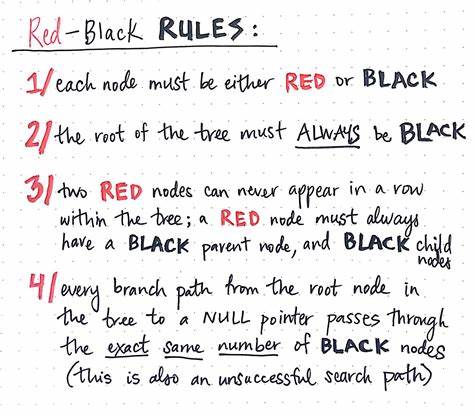 Red-Black RULES:
1/ each node must be either RED or BLACK
2/ the root of the tree must ALWAYS be BLACK
3/ two RED nodes can never appear in a row
within the tree; a RED node must always
have a BLACK parent node, and BLACK child
nodes
4/ every branch path from the root node in
the tree to a NULL pointer passes through
the exact same number of BLACK nodes
(this is also an unsuccessful search path)